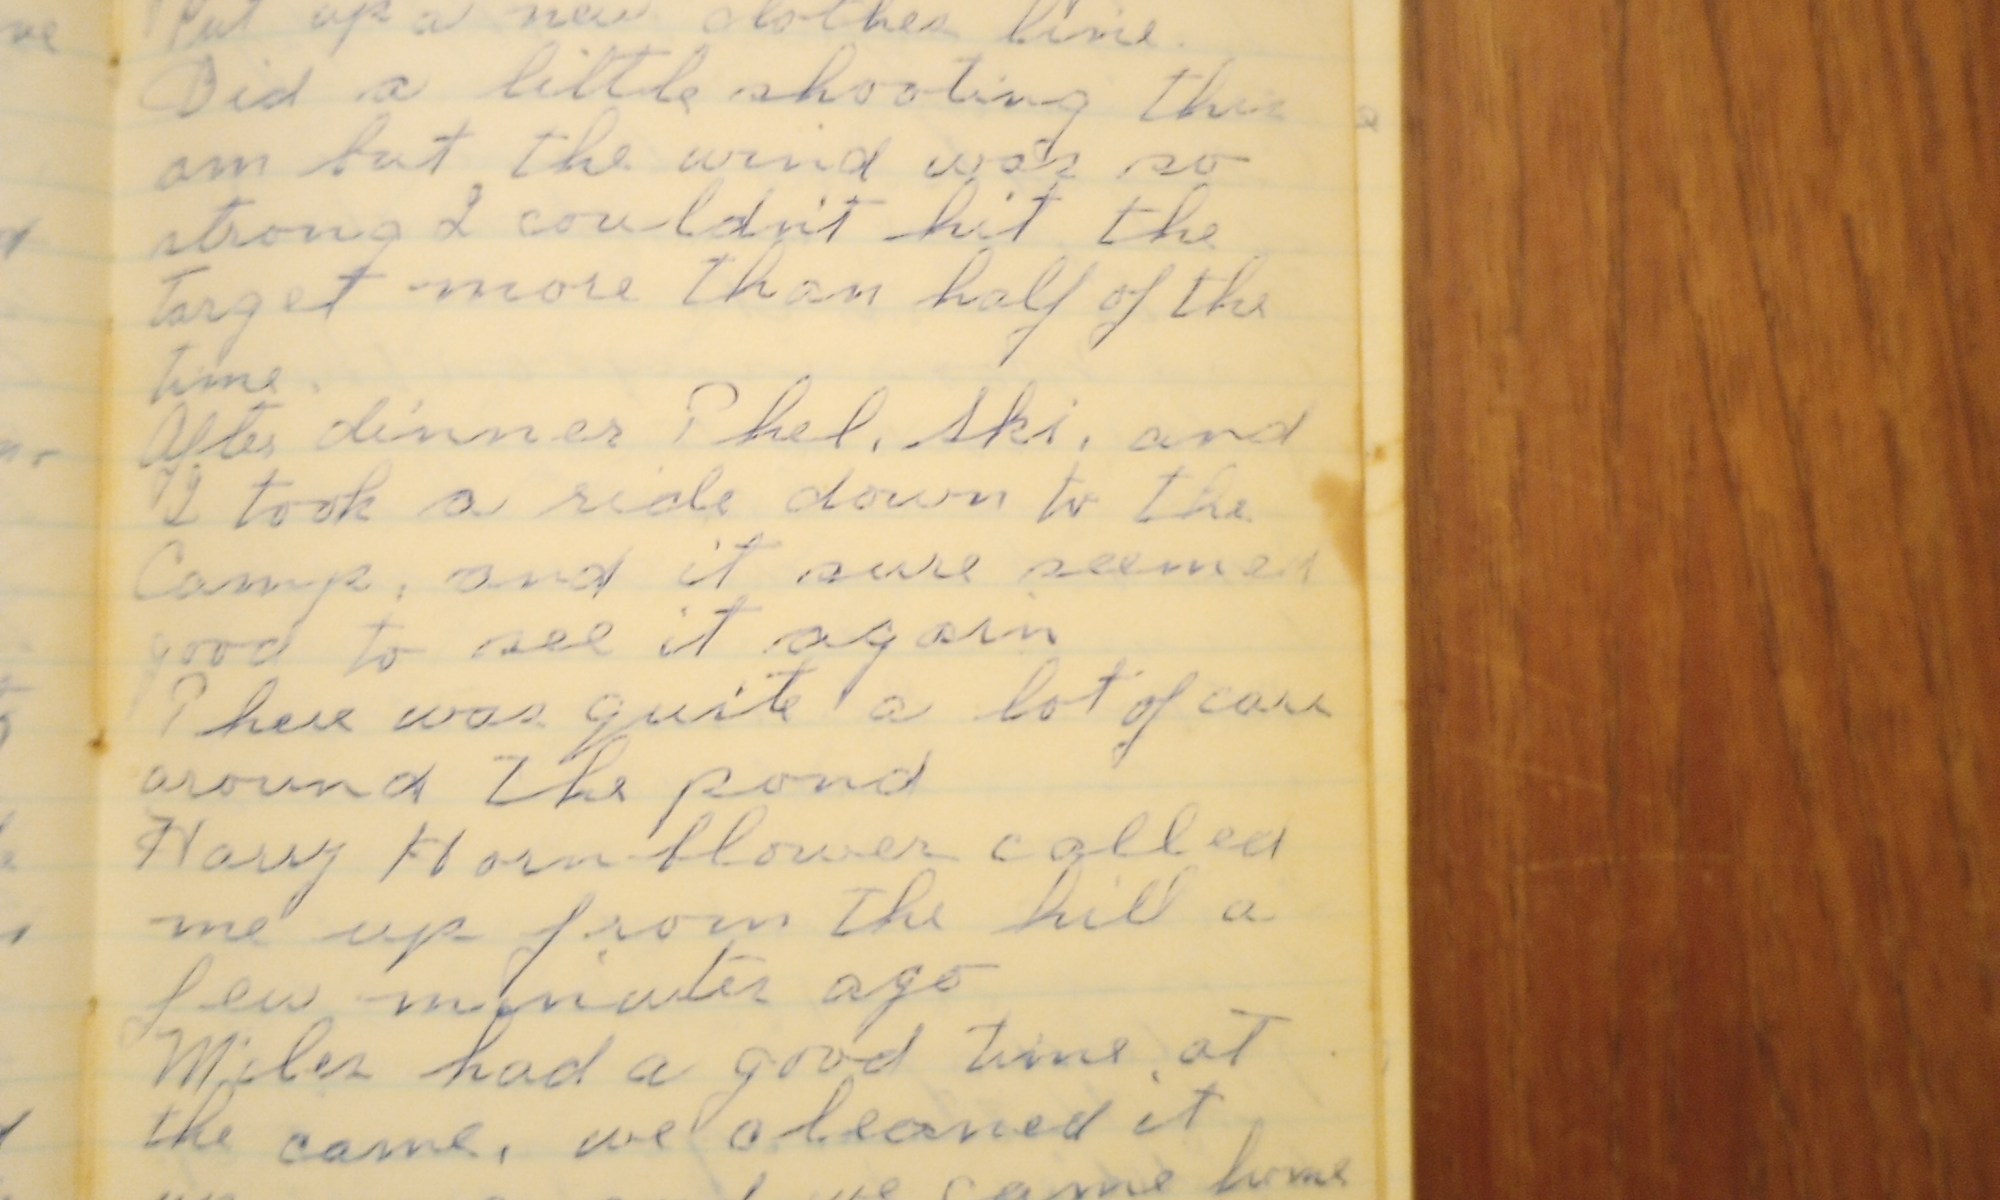 Put up a new clothes line.
Did a little shooting this
am but the wind was so
strong I couldn't hit the
target more than half of the
time.
After dinner Phel, Ski, and
I took a ride down to the
Camp, and it sure seemed
good to see it again
There was quite a lot of cars
around the pond
Harry Hornblower called
me up from the hill a
few minutes ago
Miles had a good time at
the came, we cleaned it
up and we came home